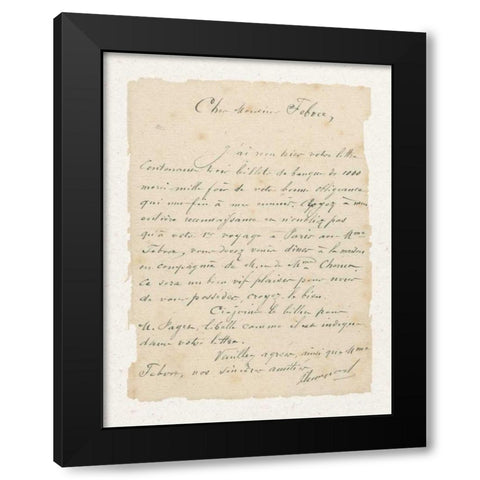 Cher Monsieur Febvre,
J'ai reçu hier votre lettre
Contenant trois billets de banque de 1000
merci mille fois de votre bonne obligeance
qui met fin à mes ennuis. Croyez à mon
entière reconnaissance et n'oubliez pas
qu'à votre 1er voyage à Paris avec Mme
Febvre, vous devez venir dîner à la maison
en compagnie de M. et de Mme
Ce sera un bien vif plaisir pour nous
de vous posséder, croyez le bien.
Ci-joint le billet pour
M. Pagès, libellé comme il est indiqué
dans votre lettre.
Veuillez agréer, ainsi que Mme
Febvre, nos sincères amitiés